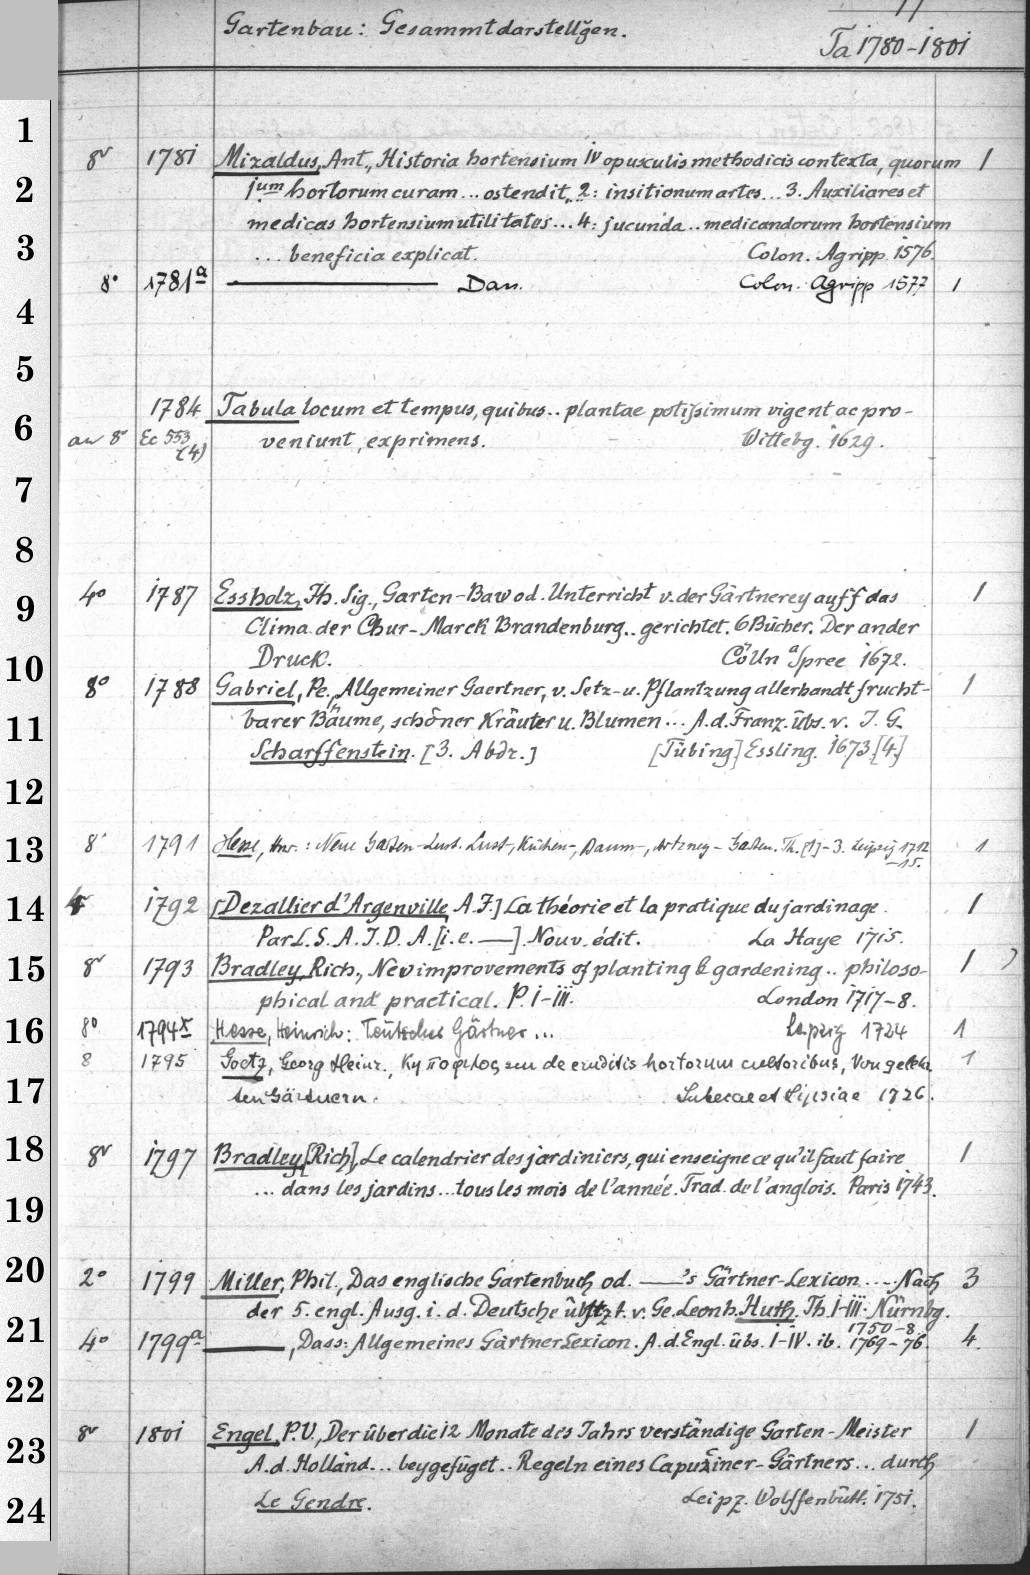 Gartenbau: Gesammtdarstellg̃en.
Ta 1780-1801
1
8° 1781 Mizaldus, Ant., Historia hortensium IV opusculis methodicis contexta, quorum 1
2
1um hortorum curam ... ostendit, 2: insitionum artes ... 3. Auxiliares et
medicas hortensium utilitates ... 4: jucunda .. medicandorum hortensium
3
... beneficia explicat. Colon. Agripp. 1576.
8° 1781a ——— Dass. Colon. Agripp 1577 1
4
5
1784 Tabula locum et tempus, quibus .. plantae potissimum vigent ac pro-
6
an 8° Ec 553 (4) veniunt, exprimens. Wittebg. 1629.
7
8
4° 1787 Essholz, Th. Sig., Garten-Baw od. Unterricht v. der Gärtnerey auff das 1
9
Clima der Chur-Marck Brandenburg .. gerichtet. 6 Bücher. Der ander
10
Druck. Cölln a Spree 1672.
8° 1788 Gabriel, Pe., Allgemeiner Gaertner, v. Setz- u. Pflantzung allerhandt frucht- 1
11
barer Bäume, schöner Kräuter u. Blumen ... A. d. Franz. übs. v. J. G.
Scharffenstein. [3. Abdr.] [Tübing.] Essling. 1673.[4.]
12
13
8° 1791 Hesse, Hnr.: Neue Garten-Lust. Lust-, Küchen-, Baum-, Artzney-Garten. Th. [1]-3. Leipzig 1712
-15. 1
14
1792 [Dezallier d'Argenville, A. J.] La théorie et la pratique du jardinage. 1
Par L. S. A. J. D. A. [i. e. ——]. Nouv. édit. La Haye 1715.
15
8° 1793 Bradley, Rich., New improvements of planting & gardening .. philoso- 1
phical and practical. P. I-III. London 1717-8.
16
8° 1794x Hesse, Heinrich: Teutscher Gärtner ... Leipzig 1724 1
8 1795 Goetz, Georg Heinr., Κηποφιλος seu de eruditis hortorum cultoribus, Von gelehr-
1
17
ten Gärtnern. Lubecae et Lipsiae 1726.
18
8° 1797 Bradley, [Rich.], Le calendrier des jardiniers, qui enseigne ce qu'il faut faire 1
... dans les jardins ... tous les mois de l'année. Trad. de l'anglois. Paris 1743.
19
20
2° 1799 Miller, Phil., Das englische Gartenbuch od. ——'s Gärtner-Lexicon .... Nach 3
der 5. engl. Ausg. i. d. Deutsche übstzt. v. Ge. Leonh. Huth. Th. I-III. Nürnbg.
1750-8.
21
4° 1799a ———, Dass: Allgemeines Gärtner Lexicon. A. d. Engl. übs. I-IV. ib. 1769-76. 4.
22
8° 1801 Engel, P. V., Der über die 12 Monate des Jahrs verständige Garten-Meister 1
23
A. d. Holländ... beygefüget .. Regeln eines Capuziner-Gärtners ... durch
24
Le Gendre. Leipz. Wolffenbütt. 1751.